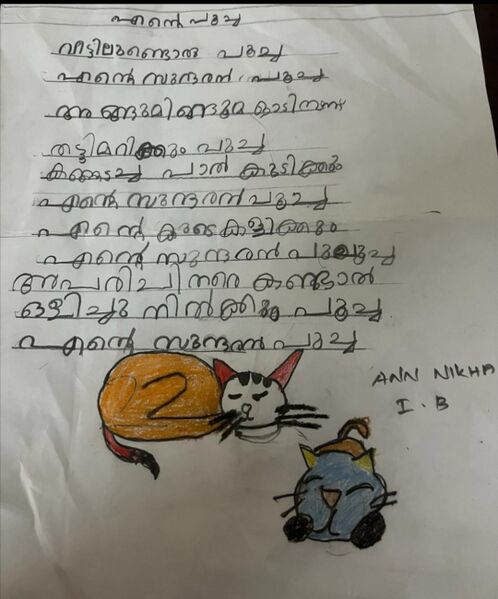 എന്റെ പൂച്ച
വീട്ടിലുണ്ടൊരു പൂച്ച
എന്റെ സുന്ദരൻ പൂച്ച
അങ്ങുമിങ്ങുമ ഓടിനടന്ന്
തട്ടിമറിക്കും പൂച്ച
കണ്ണടച്ച് പാൽ കുടിക്കും
എന്റെ സുന്ദരൻ പൂച്ച
എന്റെ കൂടെ കളിക്കും
എന്റെ സുന്ദരൻ പൂച്ച
അപരിചിതരെ കണ്ടാൽ
ഒളിച്ചു നിൽക്കും പൂച്ച
എന്റെ സുന്ദരൻ പൂച്ച
ANN NIKHA
I. B